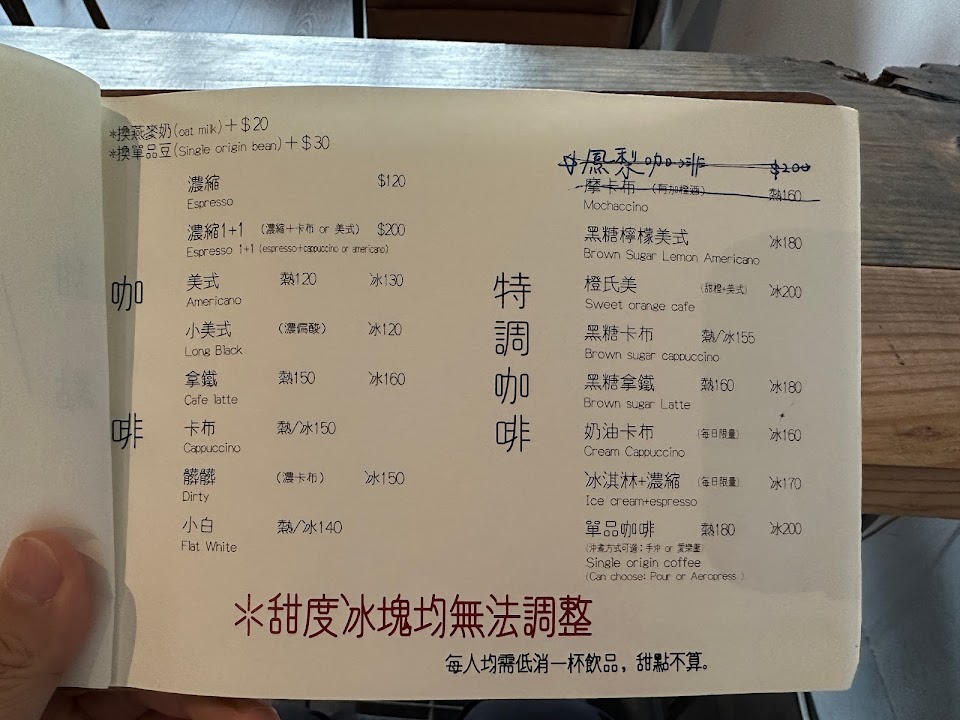 *換燕麥奶(oat milk)+$20
*換單品豆(Single origin bean)+$30
咖啡
濃縮 $120
Espresso
濃縮1+1 (濃縮+卡布 or 美式) $200
Espresso 1+1 (espresso+cappuccino or americano)
美式 熱120 冰130
Americano
小美式 (濃偏酸) 冰120
Long Black
拿鐵 熱150 冰160
Cafe latte
卡布 熱/冰150
Cappuccino
髒髒 (濃卡布) 冰150
Dirty
小白 熱/冰140
Flat White
特調咖啡
鳳梨咖啡 $200
摩卡布 (有加橙酒) 熱160
Mochaccino
黑糖檸檬美式 冰180
Brown Sugar Lemon Americano
橙氏美 (甜橙+美式) 冰200
Sweet orange cafe
黑糖卡布 熱/冰155
Brown sugar cappuccino
黑糖拿鐵 熱160 冰180
Brown sugar Latte
奶油卡布 (每日限量) 冰160
Cream Cappuccino
冰淇淋+濃縮 (每日限量) 冰170
Ice cream+espresso
單品咖啡 熱180 冰200
(沖煮方式可選：手沖 or 愛樂壓)
Single origin coffee
(Can choose: Pour or Aeropress )
＊甜度冰塊均無法調整
每人均需低消一杯飲品，甜點不算。